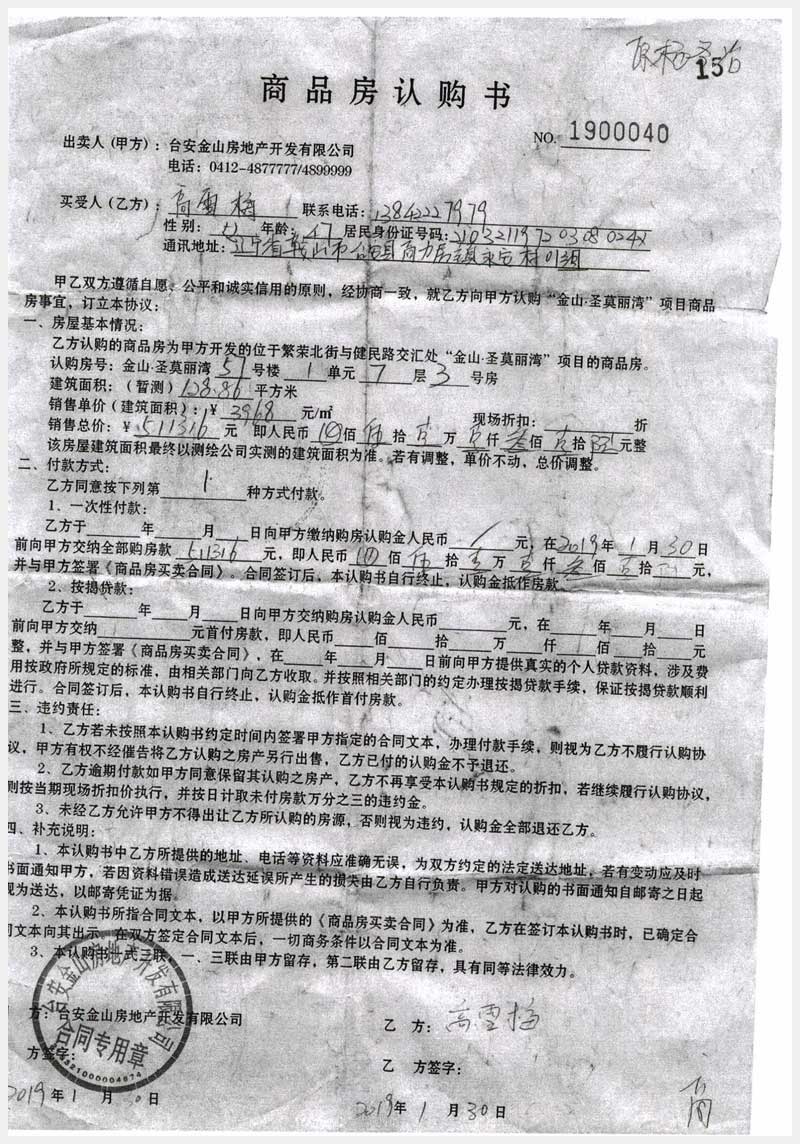 15
商品房认购书
NO. 1900040
出卖人(甲方):台安金山房地产开发有限公司
电话:0412-4877777/4899999
买受人(乙方):高雪梅 联系电话:13842227979
性别:女 年龄:47 居民身份证号码:21032119720308024X
通讯地址:辽宁省鞍山市台安县高力房镇
甲乙双方遵循自愿、公平和诚实信用的原则,经协商一致,就乙方向甲方认购“金山·圣莫丽湾”项目商品
房事宜,订立本协议:
一、房屋基本情况:
乙方认购的商品房为甲方开发的位于繁荣北街与健民路交汇处“金山·圣莫丽湾”项目的商品房。
认购房号:金山·圣莫丽湾 51 号楼 1 单元 7 层 3 号房
建筑面积:(暂测)128.86 平方米
销售单价(建筑面积):¥ 3968 元/㎡ 现场折扣: 折
销售总价:¥ 511316 元 即人民币 佰 伍 拾 壹 万 壹 仟 叁 佰 壹 拾 陆 元整
该房屋建筑面积最终以测绘公司实测的建筑面积为准。若有调整,单价不动,总价调整。
二、付款方式:
乙方同意按下列第 1 种方式付款。
1、一次性付款:
乙方于 年 月 日向甲方缴纳购房认购金人民币 / 元,在 2019 年 1 月 30 日
前向甲方交纳全部购房款 511316 元,即人民币 佰 伍 拾 壹 万 壹 仟 叁 佰 壹 拾 元,
并与甲方签署《商品房买卖合同》。合同签订后,本认购书自行终止,认购金抵作房款。
2、按揭贷款:
乙方于 年 月 日向甲方交纳购房认购金人民币 元,在 年 月 日
前向甲方交纳 元首付房款,即人民币 佰 拾 万 仟 佰 拾 元
整,并与甲方签署《商品房买卖合同》,在 年 月 日前向甲方提供真实的个人贷款资料,涉及费
用按政府所规定的标准,由相关部门向乙方收取。并按照相关部门的约定办理按揭贷款手续,保证按揭贷款顺利
进行。合同签订后,本认购书自行终止,认购金抵作首付房款。
三、违约责任:
1、乙方若未按照本认购书约定时间内签署甲方指定的合同文本,办理付款手续,则视为乙方不履行认购协
议,甲方有权不经催告将乙方认购之房产另行出售,乙方已付的认购金不予退还。
2、乙方逾期付款如甲方同意保留其认购之房产,乙方不再享受本认购书规定的折扣,若继续履行认购协议,
则按当期现场折扣价执行,并按日计取未付房款万分之三的违约金。
3、未经乙方允许甲方不得出让乙方所认购的房源,否则视为违约,认购金全部退还乙方。
四、补充说明:
1、本认购书中乙方所提供的地址、电话等资料应准确无误,为双方约定的法定送达地址,若有变动应及时
书面通知甲方,若因资料错误造成送达延误所产生的损失由乙方自行负责。甲方对认购的书面通知自邮寄之日起
视为送达,以邮寄凭证为据。
2、本认购书所指合同文本,以甲方所提供的《商品房买卖合同》为准,乙方在签订本认购书时,已确定合
同文本向其出示。在双方签定合同文本后,一切商务条件以合同文本为准。
3、本认购书一式三联,一、三联由甲方留存,第二联由乙方留存,具有同等法律效力。
方:台安金山房地产开发有限公司 乙 方:高雪梅
方签字: 乙 方签字:
台安金山房地产开发有限公司
合同专用章
2019年 1 月 30 日 2019年 1 月 30 日